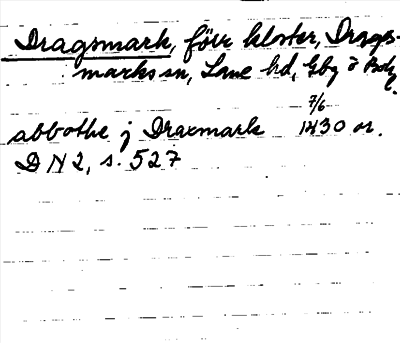 Dragsmark, förr kloster, Drags-
marks sn, Lane hd, Gbg o Boh
7/6
abbothe j Draxmark 1430 or.
DN 2, s. 527